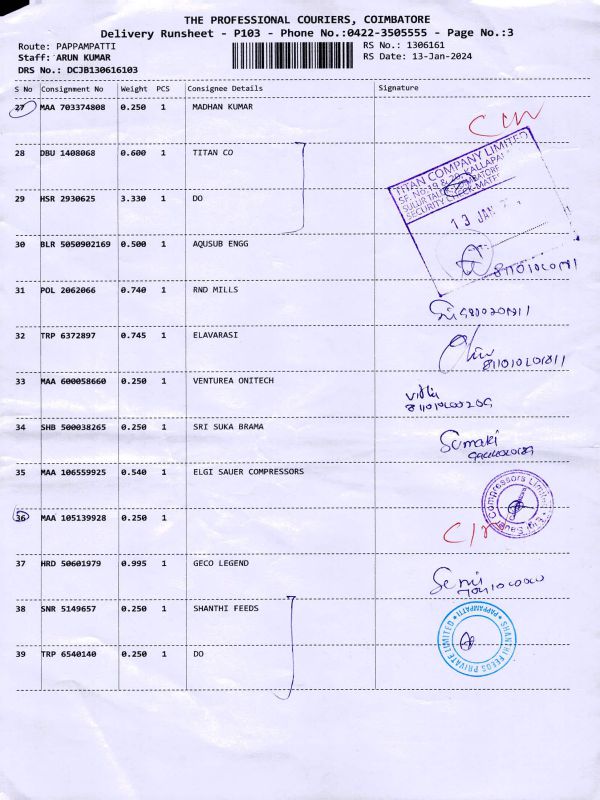 THE PROFESSIONAL COURIERS, COIMBATORE
Delivery Runsheet - P103 - Phone No.:0422-3505555 - Page No.:3
Route: PAPPAMPATTI RS No.: 1306161
Staff: ARUN KUMAR RS Date: 13-Jan-2024
DRS No.: DCJB130616103
S No Consignment No Weight PCS Consignee Details Signature
27 MAA 703374808 0.250 1 MADHAN KUMAR
28 DBU 1408068 0.600 1 TITAN CO
TITAN COMPANY LIMITED
13 JAN
29 HSR 2930625 3.330 1 DO
30 BLR 5050902169 0.500 1 AQUSUB ENGG
31 POL 2062066 0.740 1 RND MILLS
32 TRP 6372897 0.745 1 ELAVARASI
33 MAA 600058660 0.250 1 VENTUREA ONITECH
34 SHB 500038265 0.250 1 SRI SUKA BRAMA
Sumaki
35 MAA 106559925 0.540 1 ELGI SAUER COMPRESSORS
Elgi Sauer Compressors Limited
36 MAA 105139928 0.250 1
37 HRD 50601979 0.995 1 GECO LEGEND
38 SNR 5149657 0.250 1 SHANTHI FEEDS
SHANTHI FEEDS PRIVATE LIMITED
PAPPAMPATTI
39 TRP 6540140 0.250 1 DO